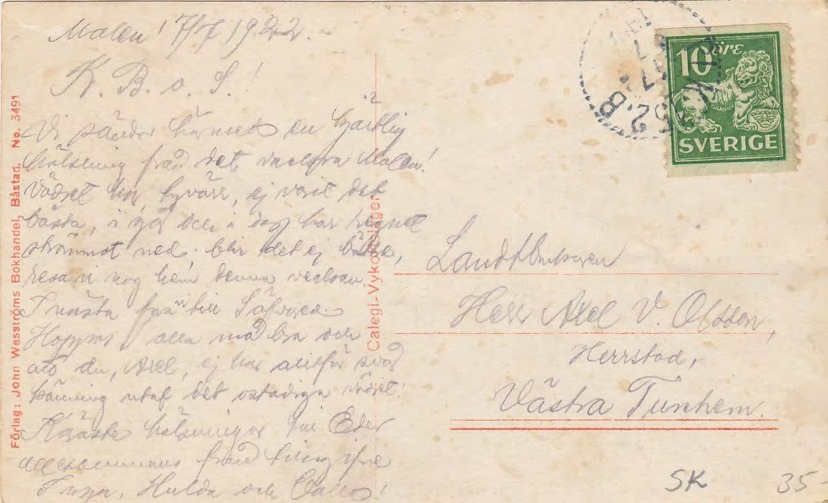 Malen! 7/7 1922.
K. B. o. S!
Vi sänder härmed en hjärtlig
hälsning från det vackra Malen!
Vädret har tyvärr, ej varit det
bästa, i går och i dag har regnet
strömmat ned. blir det ej bättre,
resa vi nog hem denna veckan.
I nästa till
Hoppas alla må bra och
att du, Axel, ej har alltför svår
känning utaf det ostadiga vädret!
Käraste hälsningar till Eder
allesammans från
Hulda och
Förlag: John Wesströms Bokhandel, Båstad. No. 3491
Calegi-Vykort
10 öre
SVERIGE
Landtbrukaren
Herr Axel V. Olsson,
Herrstad,
Västra Tunhem.
SK 35-